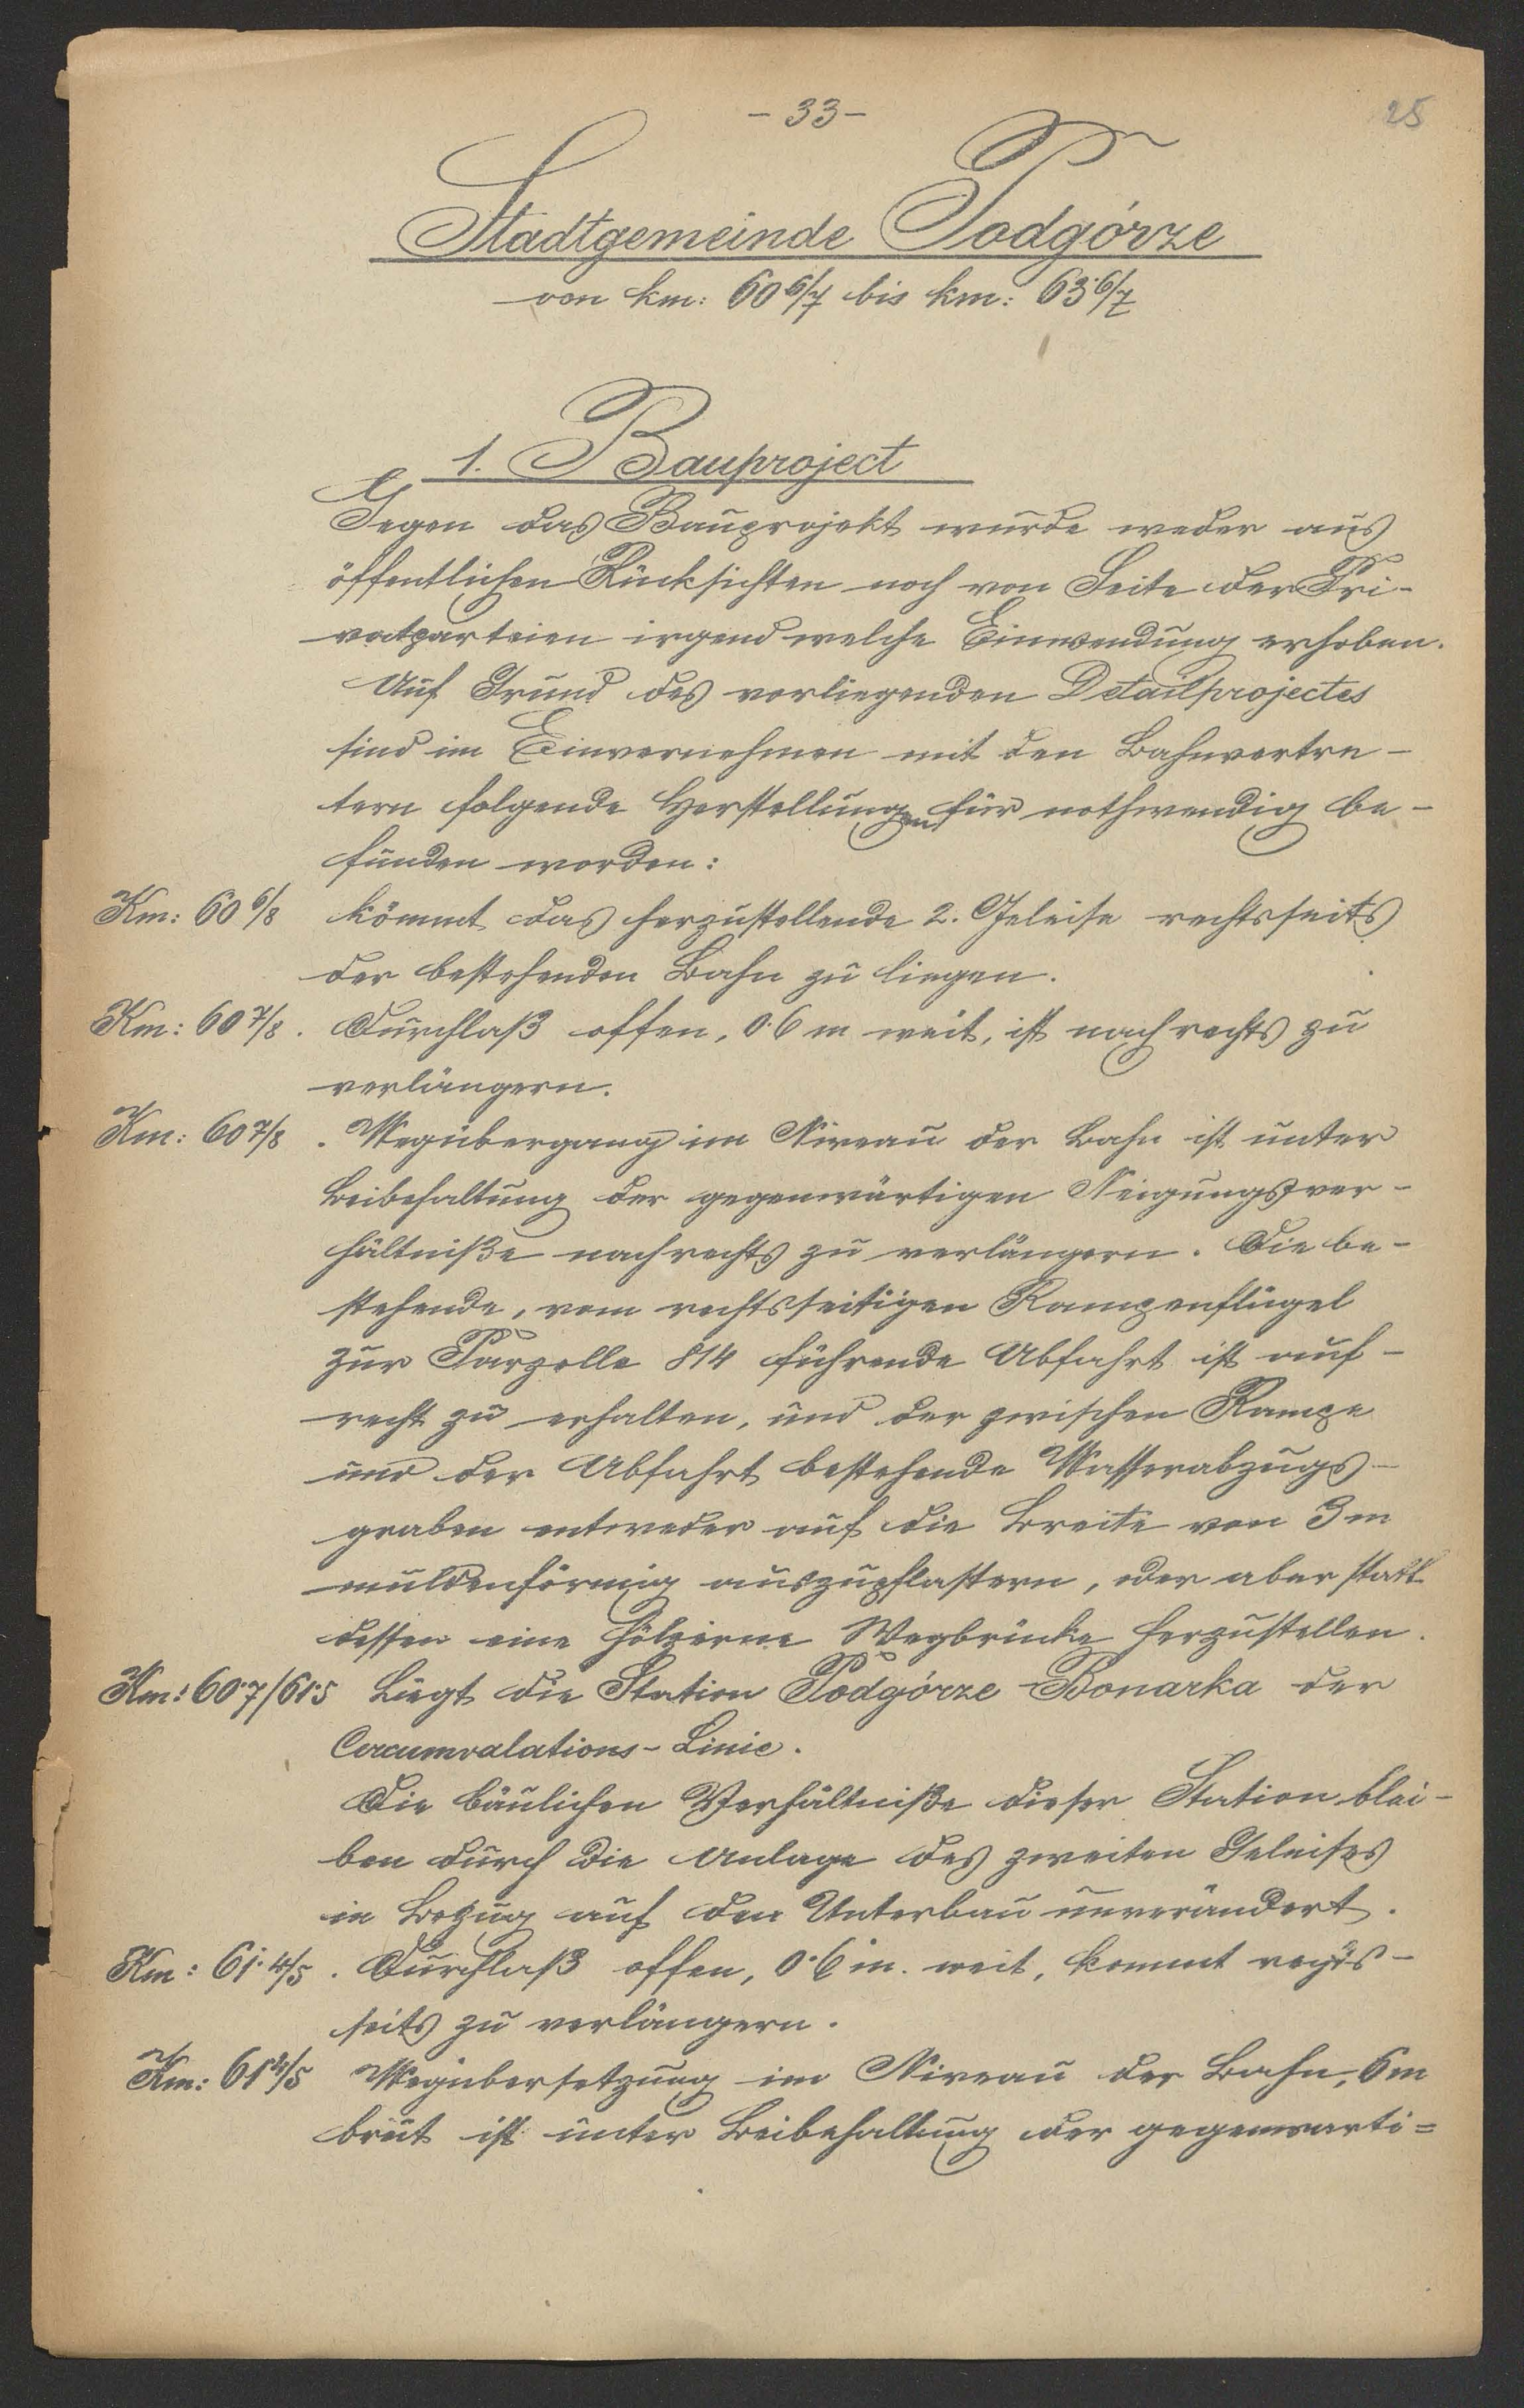 - 33 -
25
Stadtgemeinde Podgórze
von km: 60 6/7 bis km: 63·6/7
1. Bauproject
Gegen das Bauprojekt wurde weder aus
öffentlichen Rücksichten noch von Seite der Pri-
vatparteien irgend welche Einwendung erhoben.
Auf Grund des vorliegenden Detailprojectes
sind im Einvernehmen mit den Bahnvertre-
tern folgende Herstellungen für nothwendig be-
funden worden:
Km: 60 6/8 kömmt das herzustellende 2. Geleise rechtsseits
der bestehenden Bahn zu liegen.
Km: 60 7/8. Durchlaß offen, 0·6 m weit, ist nach rechts zu
verlängern.
Km: 60 7/8. Wegübergang im Niveau der Bahn ist unter
Beibehaltung der gegenwärtigen Neigungsver-
hältniße nach rechts zu verlängern. Die be-
stehende, vom rechtsseitigen Rampenflügel
zur Parzelle 814 führende Abfahrt ist auf-
recht zu erhalten, und der zwischen Rampe
und der Abfahrt bestehende Wasserabzugs-
graben entweder auf die Breite von 3 m
muldenförmig auszupflastern, oder aber statt
dessen eine hölzerne Wegbrücke herzustellen.
Km: 60·7/61·5 Liegt die Station Podgórze-Bonarka der
Circumvalations-Linie.
Die bäulichen Verhältniße dieser Station blei-
ben durch die Anlage des zweiten Geleises
in Bezug auf den Unterbau unverändert.
Km: 61·4/5. Durchlaß offen, 0·6 m. weit, kommt rechts-
seits zu verlängern.
Km: 61 4/5 Wegübersetzung im Niveau der Bahn, 6 m
breit ist unter Beibehaltung der gegenwarti=